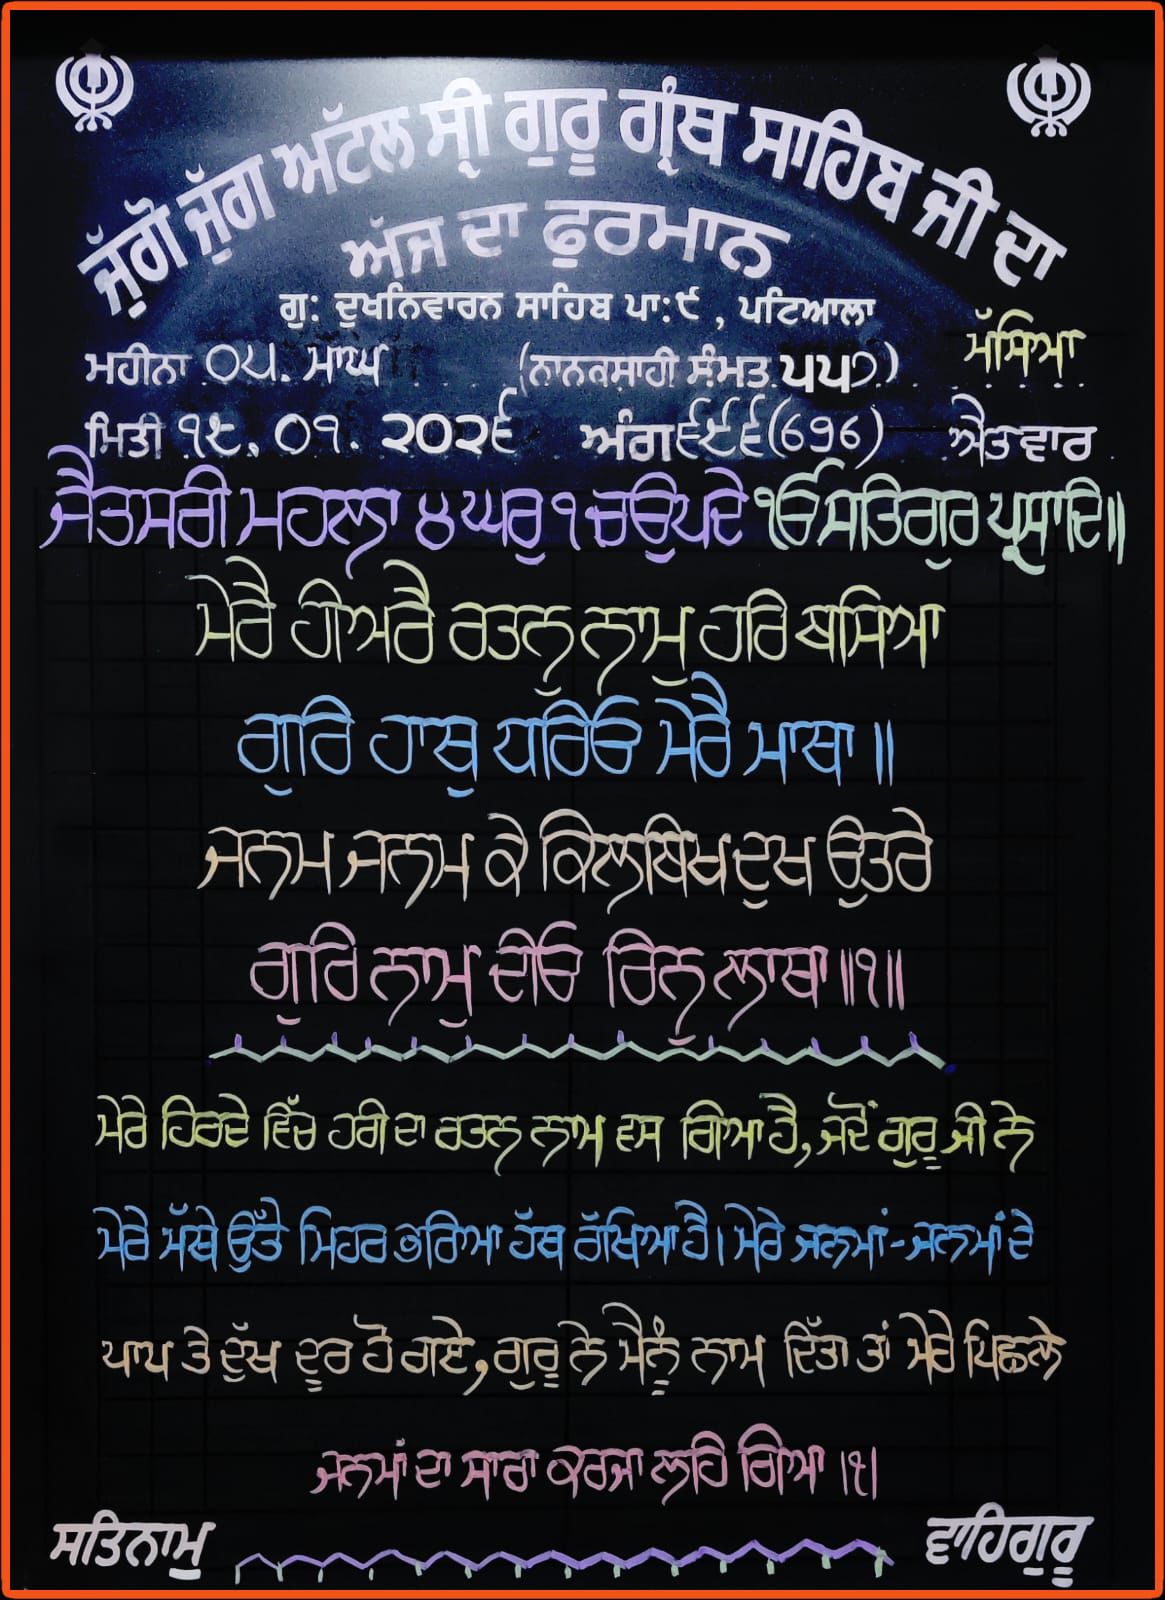 ਜੁੱਗੋ ਜੁੱਗ ਅਟੱਲ ਸ੍ਰੀ ਗੁਰੂ ਗ੍ਰੰਥ ਸਾਹਿਬ ਜੀ ਦਾ
ਅੱਜ ਦਾ ਫੁਰਮਾਨ
ਗੁ: ਦੁਖਨਿਵਾਰਨ ਸਾਹਿਬ ਪਾ:੯ , ਪਟਿਆਲਾ
ਮੱਸਿਆ
ਮਹੀਨਾ ੦੫. ਮਾਘ (ਨਾਨਕਸ਼ਾਹੀ ਸੰਮਤ ੫੫੭)
ਮਿਤੀ ੧੮.੦੧.੨੦੨੬ ਅੰਗ ੬੯੬ (696) ਐਤਵਾਰ
ਜੈਤਸਰੀ ਮਹਲਾ ੪ ਘਰੁ ੧ ਚਉਪਦੇ ੴ ਸਤਿਗੁਰ ਪ੍ਰਸਾਦਿ॥
ਮੇਰੈ ਹੀਅਰੈ ਰਤਨੁ ਨਾਮੁ ਹਰਿ ਬਸਿਆ
ਗੁਰਿ ਹਾਥੁ ਧਰਿਓ ਮੇਰੈ ਮਾਥਾ ॥
ਜਨਮ ਜਨਮ ਕੇ ਕਿਲਬਿਖ ਦੁਖ ਉਤਰੇ
ਗੁਰਿ ਨਾਮੁ ਦੀਓ ਰਿਨੁ ਲਾਥਾ ॥੧॥
ਮੇਰੇ ਹਿਰਦੇ ਵਿੱਚ ਹਰੀ ਦਾ ਰਤਨ ਨਾਮ ਵਸ ਗਿਆ ਹੈ, ਜਦੋਂ ਗੁਰੂ ਜੀ ਨੇ
ਮੇਰੇ ਮੱਥੇ ਉੱਤੇ ਮਿਹਰ ਭਰਿਆ ਹੱਥ ਰੱਖਿਆ ਹੈ। ਮੇਰੇ ਜਨਮਾਂ-ਜਨਮਾਂ ਦੇ
ਪਾਪ ਤੇ ਦੁੱਖ ਦੂਰ ਹੋ ਗਏ, ਗੁਰੂ ਨੇ ਮੈਨੂੰ ਨਾਮ ਦਿੱਤਾ ਤਾਂ ਮੇਰੇ ਪਿਛਲੇ
ਜਨਮਾਂ ਦਾ ਸਾਰਾ ਕਰਜਾ ਲਹਿ ਗਿਆ ।੧।
ਸਤਿਨਾਮੁ ਵਾਹਿਗੁਰੂ